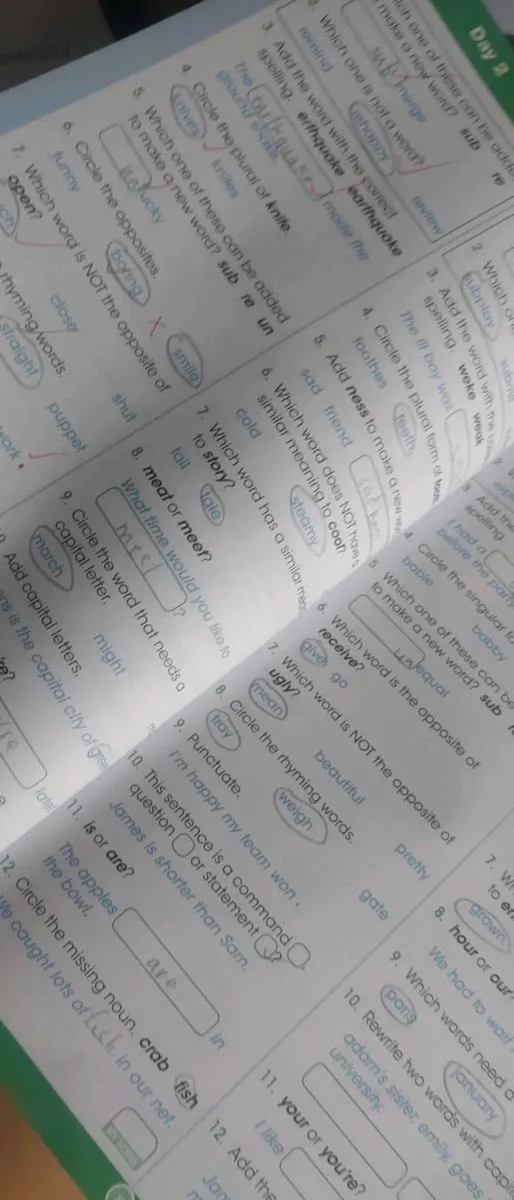 Day 2
ich one of these can be adde
make a new word? sub re
sub merge
2. Which one is not a word?
remind renappy review
3. Add the word with the correct
spelling. erthquake earthquake
The earthquake made the
ground shake.
4. Circle the plural of knife.
knives knifes
5. Which one of these can be added
to make a new word? sub re un
unlucky
6. Circle the opposites.
funny boring smile
7. Which word is NOT the opposite of
open?
close shut
rhyming words.
straight puppet
work.
9. Add capital letters.
is the capital city of
late
2. Which
3. Add the word with the
spelling. weke weak
The ill boy was
4. Circle the plural form of
toothes teeth
5. Add ness to make a new
sad friend
6. Which word does NOT have a
similar meaning to cool?
cold steamy
7. Which word has a similar
to story?
tall tale
8. meat or meet?
What time would you like to
meet ?
9. Circle the word that needs a
capital letter.
march might
10. This sentence is a command
question or statement ?
James is shorter than Sam.
11. is or are?
The apples are in
the bowl.
12. Circle the missing noun. crab fish
We caught lots of fish in our net.
3. Add the
spelling.
I had a
before the party
4. Circle the singular
bable babby
5. Which one of these can be
to make a new word? sub
unequal
6. Which word is the opposite of
receive?
give go
7. Which word is NOT the opposite of
ugly?
mean beautiful pretty
8. Circle the rhyming words.
tray weigh gate
9. Punctuate.
I'm happy my team won.
to
grown
8. hour or our?
We had to wait
9. Which words need a
paris january
10. Rewrite two words with
adam's sister, emily, goes
university.
11. your or you're?
I like
12. Add the